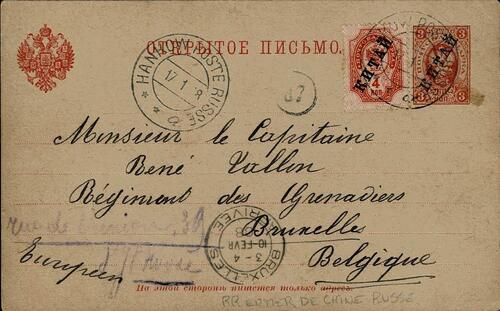 ОТКРЫТОЕ ПИСЬМО.
HANKOW POSTE RUSSE
17 1 8
a
4
КОП.
КИТАЙ
3
КИТАЙ
3
Monsieur le Capitaine
René Vallon
Régiment des Grenadiers
rue de 39
Bruxelles
Européen
Belgique
BRUXELLES
3-4
10 FEVR
ARRIVEE
На этой сторонѣ пишется только адресъ.
DE CHINE RUSSE